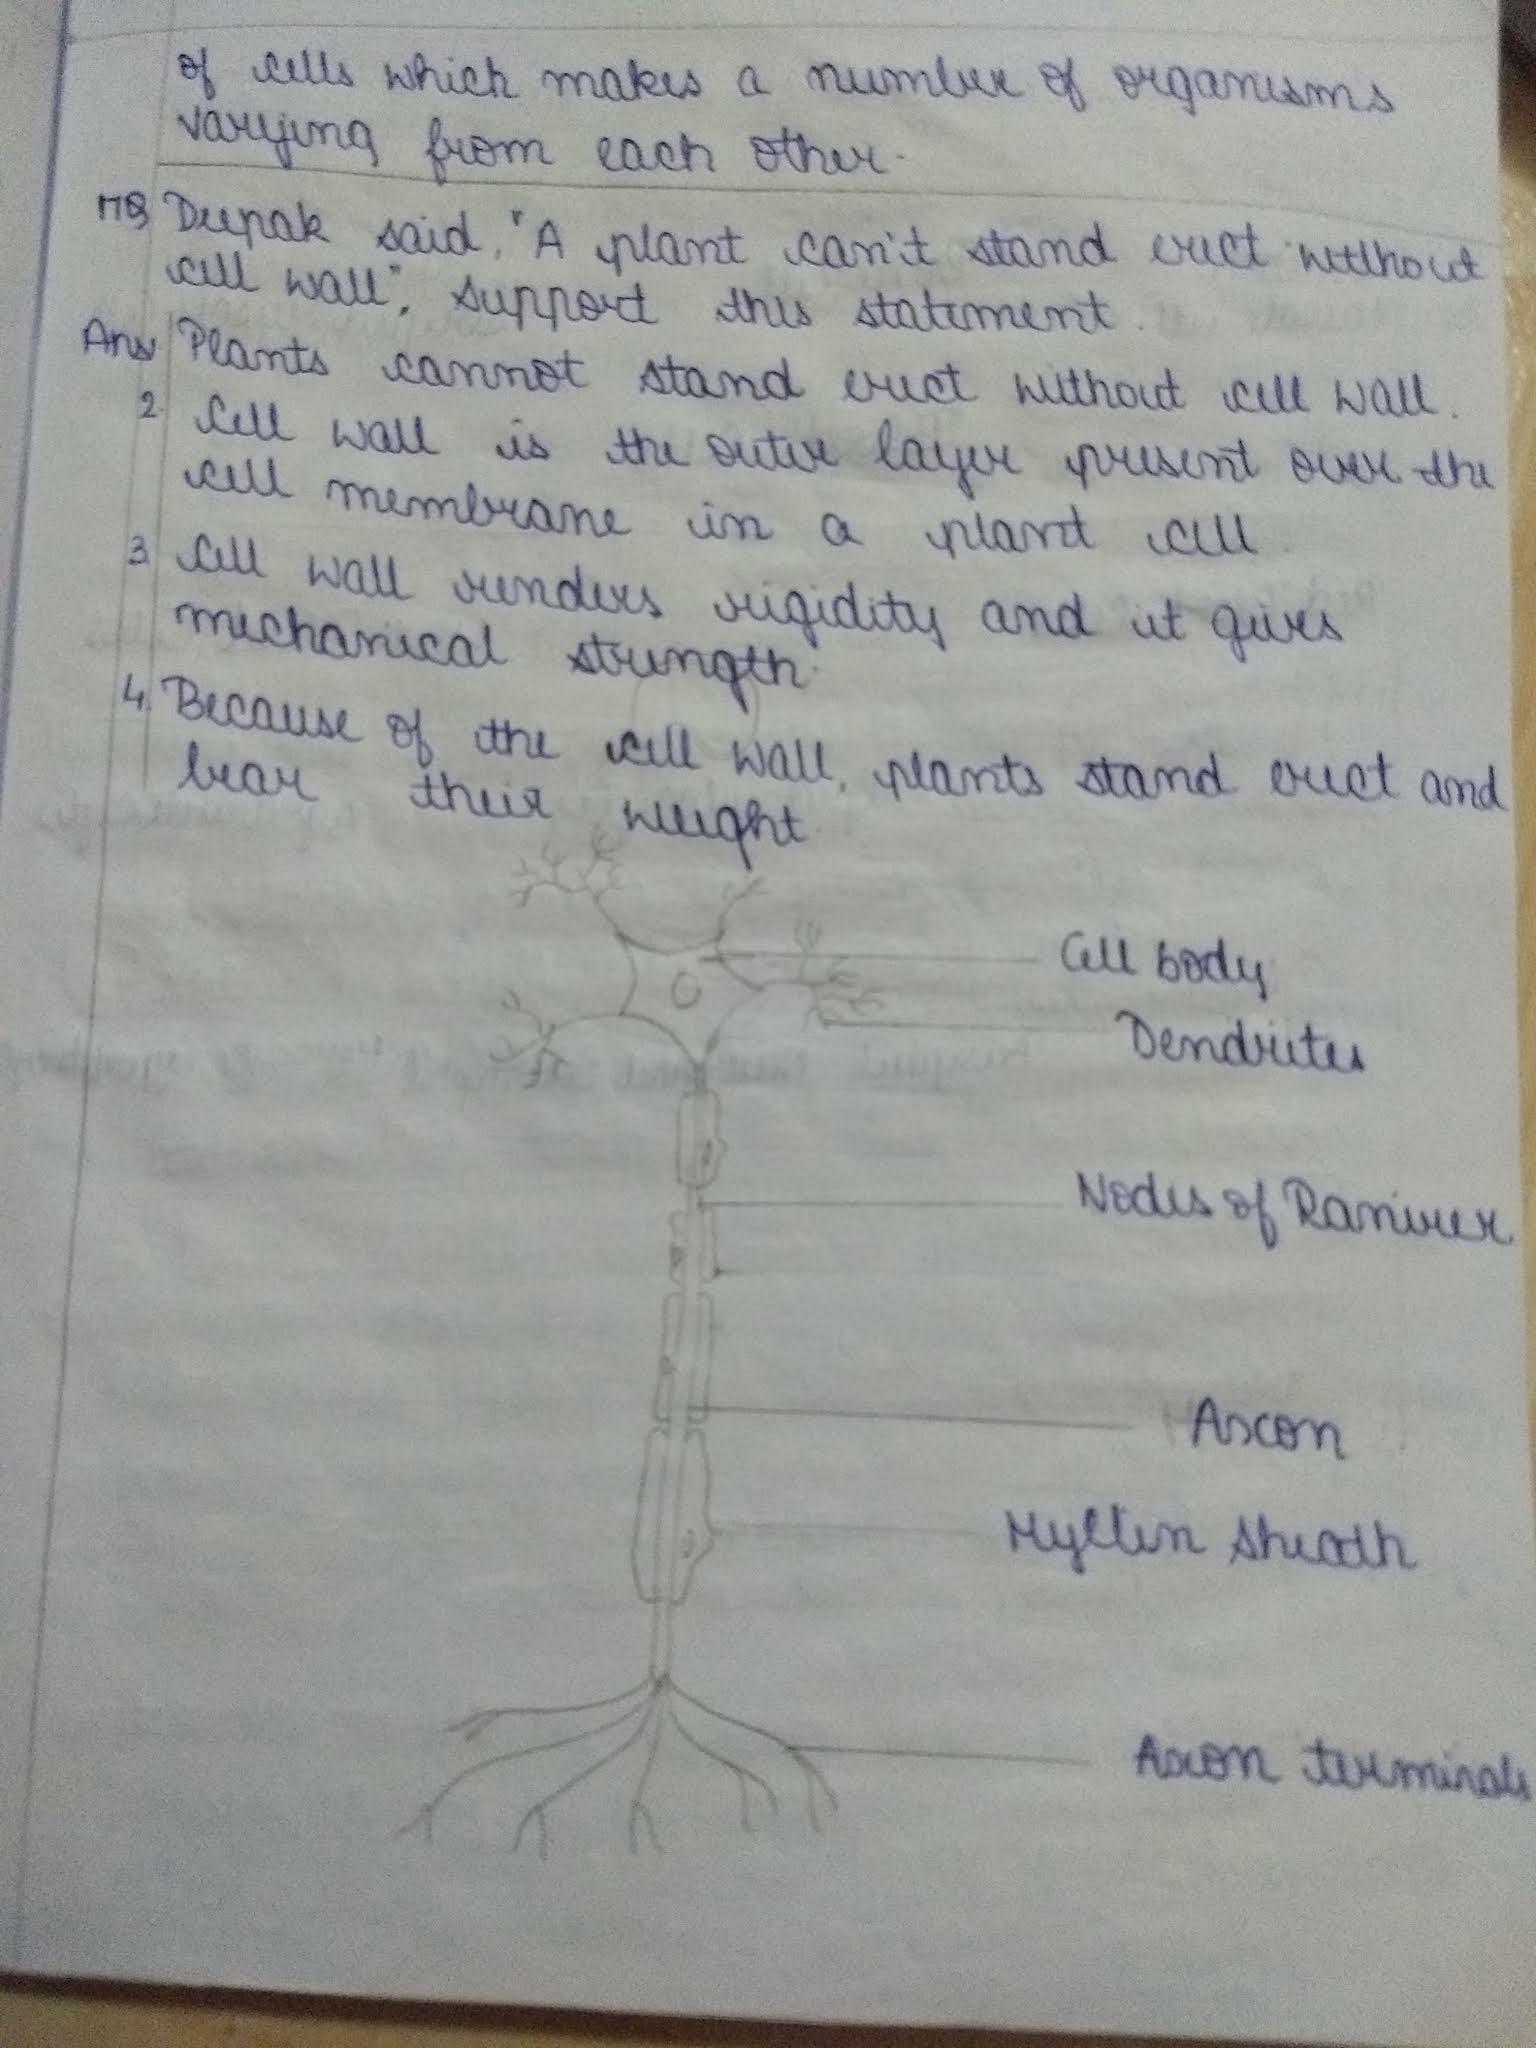 of cells which makes a number of organisms
varying from each other.
Deepak said, "A plant can't stand erect without
cell wall", support this statement.
Ans Plants cannot stand erect without cell wall.
2. Cell wall is the outer layer present over the
cell membrane in a plant cell
3 Cell wall renders rigidity and it gives
mechanical strength.
4. Because of the cell wall, plants stand erect and
bear their weight
Cell body
Dendrites
Nodes of Ranvier
Axon
Myelin sheath
Axon terminals